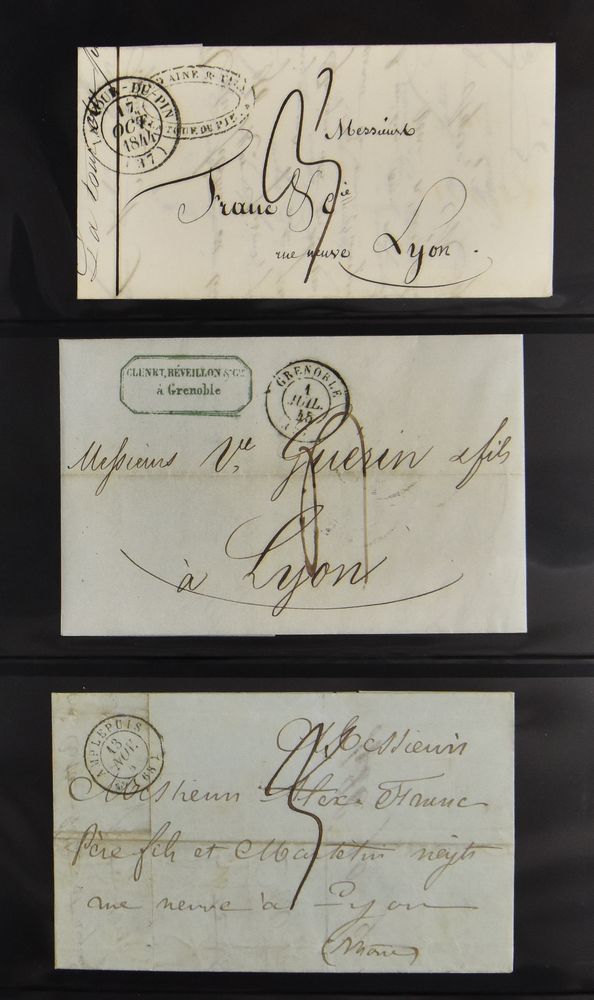 LA TOUR-DU-PIN
17
OCT.
(37)
TOUR DU PIN
3
Messieurs
Franc & Cie
rue neuve Lyon.
CLUNET, RÉVEILLON & Cie
à Grenoble
GRENOBLE
1
JUIL.
45
Messieurs Ve. Guerin & fils
à Lyon
AMPLEPUIS
13
NOV.
(68)
3
Messieurs
Messieurs Alex. Franc
Père fils et Martelin neyts
rue neuve à Lyon
(Rhone)